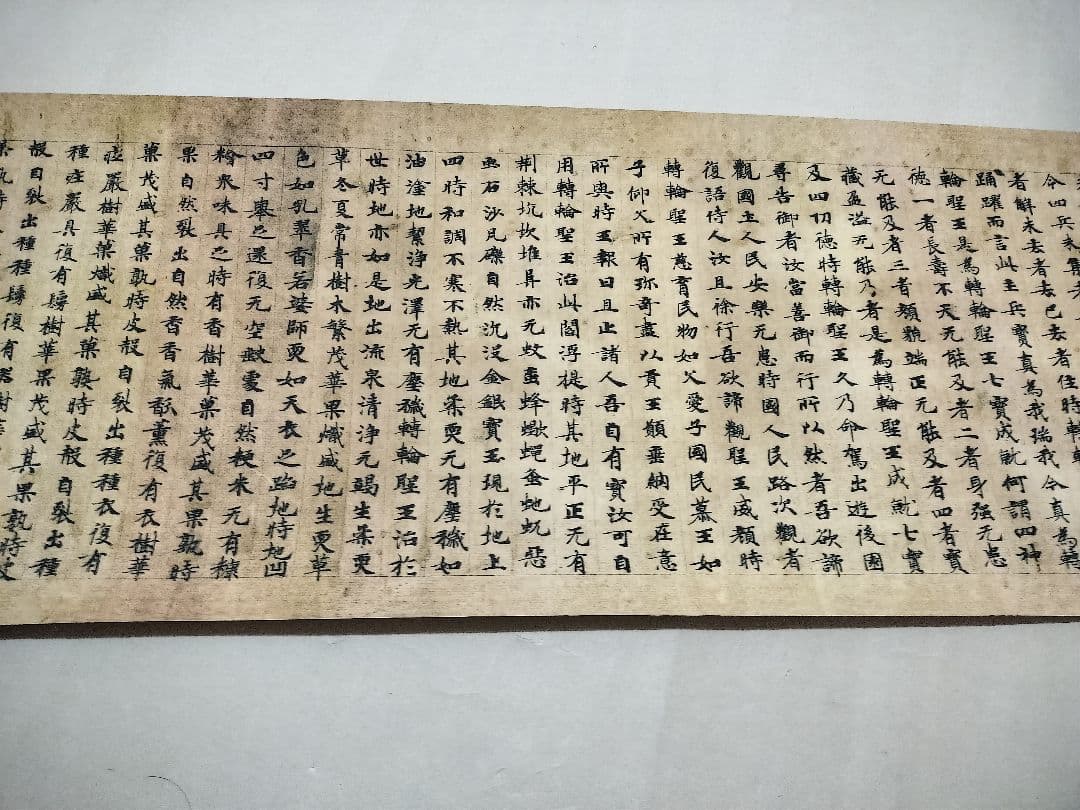 令四兵未集者
者解未去者去已去者住時轉輪
踊躍而言此主兵寶真為我瑞我今真為轉
輪聖王是為轉輪聖王七寶成就何謂四神
德一者長壽不夭无能及者二者身强无患
无能及者三者顏貌端正无能及者四者寶
藏盈溢无能乃者是為轉輪聖王成就七寶
及四功德時轉輪聖王久乃命駕出遊後園
尋告御者汝當善御而行所以然者吾欲諦
觀國土人民安樂无患時國人民路次觀者
復語侍人汝且徐行吾欲諦觀聖王威顏時
轉輪聖王慈育民物如父愛子國民慕王如
子仰父所有珍奇盡以貢王願垂納受在意
所與時王報曰且止諸人吾自有寶汝可自
用轉輪聖王治此閻浮提時其地平正无有
荆棘坑坎堆阜亦无蚊虻蜂蠍蝇蚤虵蚖惡
虫石沙凡礫自然沉没金銀寶玉現於地上
四時和調不寒不熱其地柔耎无有塵穢如
油塗地絜淨光澤无有塵穢轉輪聖王治於
世時地亦如是地出流泉清淨无竭生柔耎
草冬夏常青樹木繁茂華果熾盛地生耎草
色如孔翠香若婆師耎如天衣足蹈地時地凹
四寸舉足還復无空缺處自然粳米无有糠
粉衆味具足時有香樹華菓茂盛其果熟時
果自然裂出自然香香氣馚薰復有衣樹華
菓茂盛其菓熟時皮殼自裂出種種衣復有
莊嚴樹華菓熾盛其菓熟時皮殼自裂出種
種莊嚴具復有鬘樹華果茂盛其果熟時皮
殼自裂出種種鬘復有器樹華